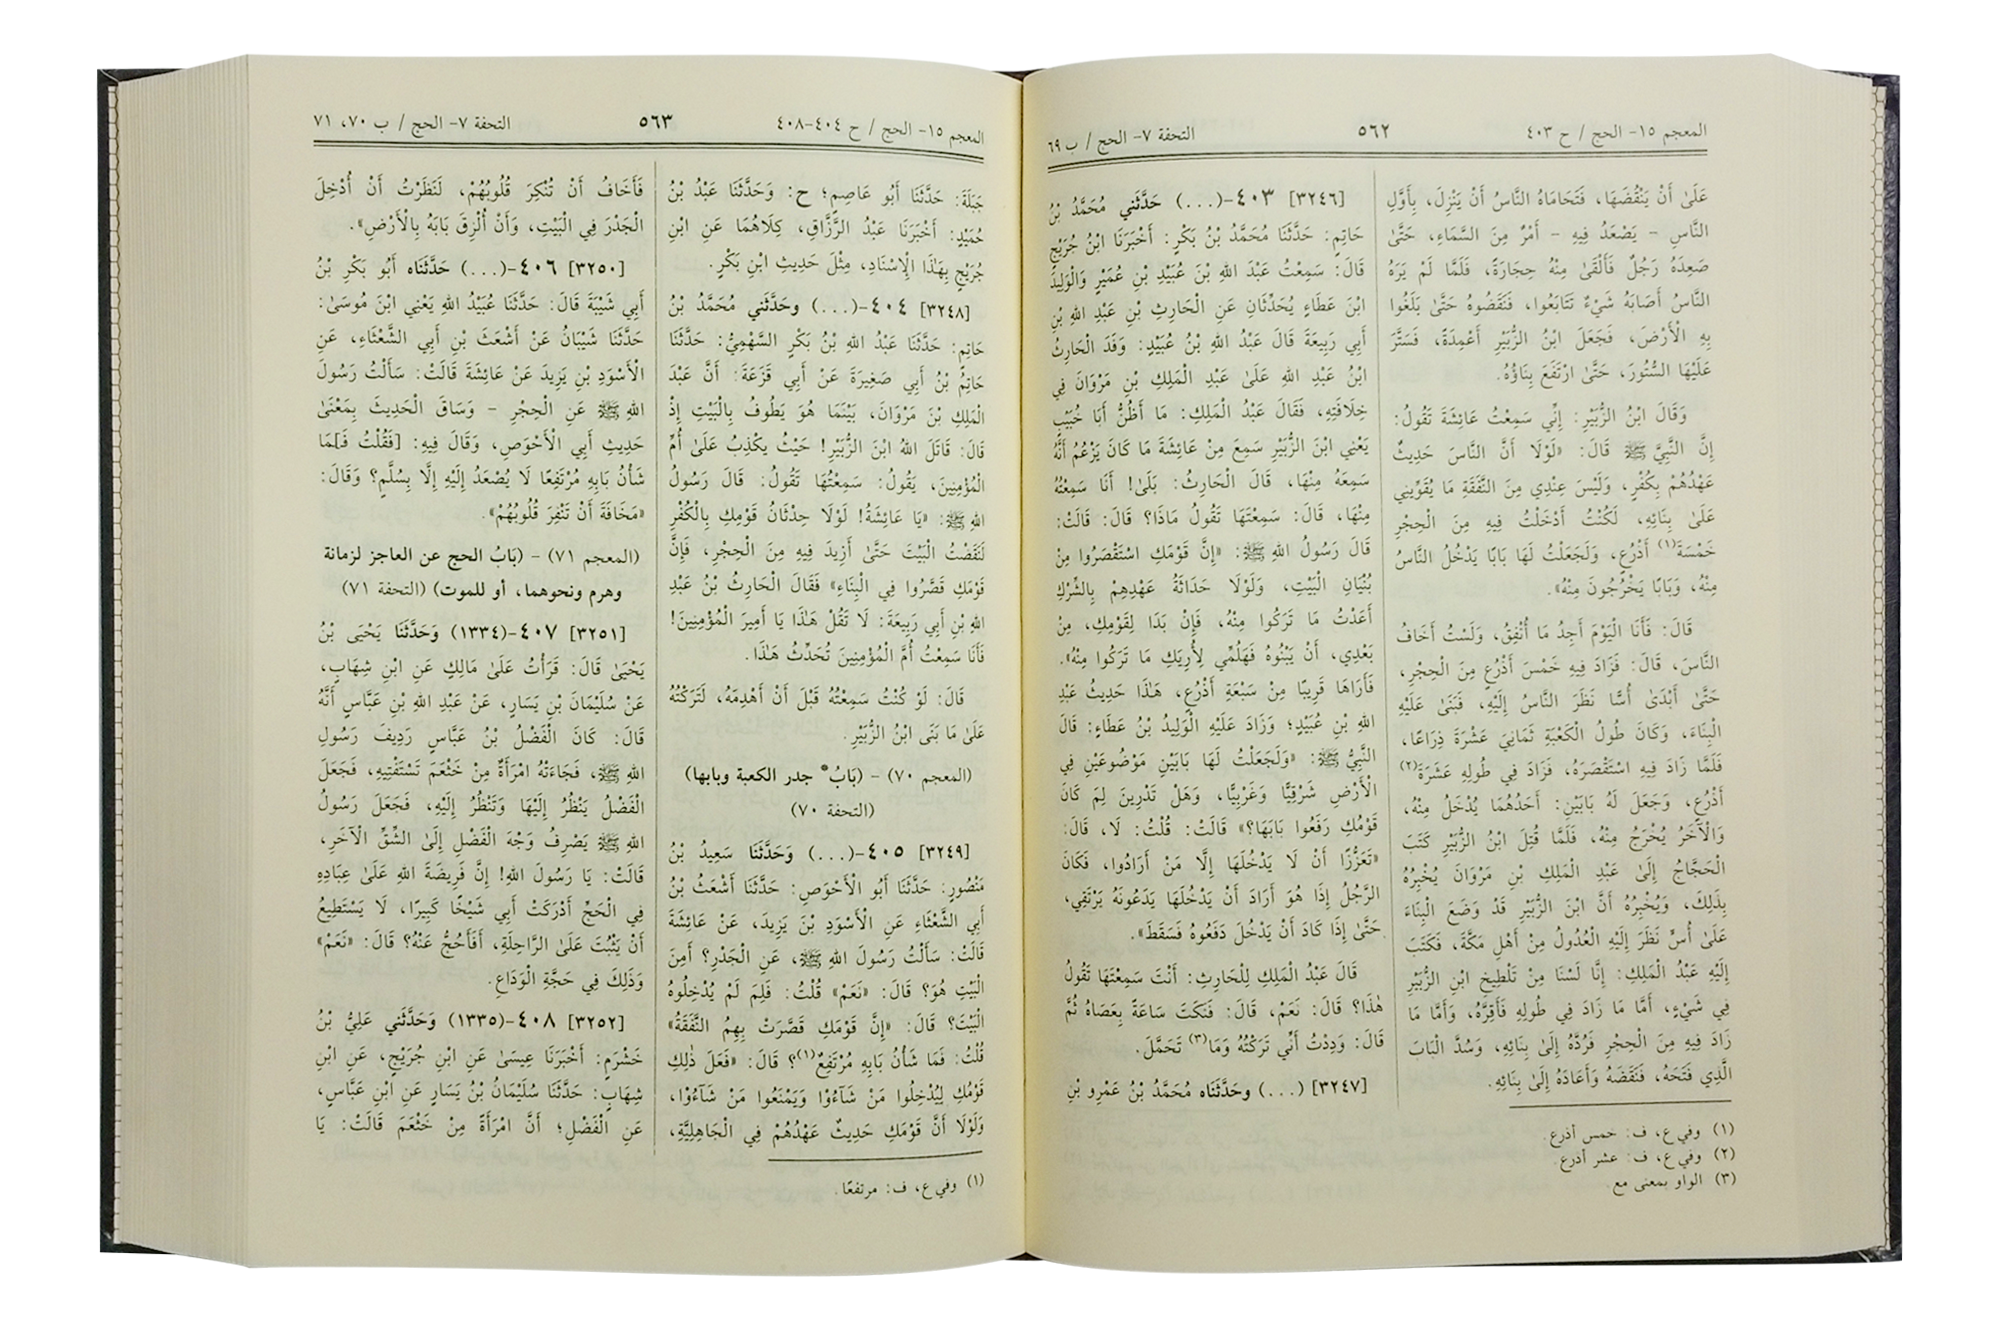 المعجم ١٥- الحج / ح ٤٠٣
٥٦٢
التحفة ٧- الحج / ب ٦٩
عَلَىٰ أَنْ يَنْقُضَهَا، فَتَحَامَاهُ النَّاسُ أَنْ يَنْزِلَ، بِأَوَّلِ
النَّاسِ - يَصْعَدُ فِيهِ - أَمْرٌ مِنَ السَّمَاءِ، حَتَّىٰ
صَعِدَهُ رَجُلٌ فَأَلْقَىٰ مِنْهُ حِجَارَةً، فَلَمَّا لَمْ يَرَهُ
النَّاسُ أَصَابَهُ شَيْءٌ تَتَابَعُوا، فَنَقَضُوهُ حَتَّىٰ بَلَغُوا
بِهِ الْأَرْضَ، فَجَعَلَ ابْنُ الزُّبَيْرِ أَعْمِدَةً، فَسَتَّرَ
عَلَيْهَا السُّتُورَ، حَتَّىٰ ارْتَفَعَ بِنَاؤُهُ.
وَقَالَ ابْنُ الزُّبَيْرِ: إِنِّي سَمِعْتُ عَائِشَةَ تَقُولُ:
إِنَّ النَّبِيَّ ﷺ قَالَ: «لَوْلَا أَنَّ النَّاسَ حَدِيثٌ
عَهْدُهُمْ بِكُفْرٍ، وَلَيْسَ عِنْدِي مِنَ النَّفَقَةِ مَا يُقَوِّينِي
عَلَىٰ بِنَائِهِ، لَكُنْتُ أَدْخَلْتُ فِيهِ مِنَ الْحِجْرِ
خَمْسَةَ(١) أَذْرُعٍ، وَلَجَعَلْتُ لَهَا بَابًا يَدْخُلُ النَّاسُ
مِنْهُ، وَبَابًا يَخْرُجُونَ مِنْهُ».
قَالَ: فَأَنَا الْيَوْمَ أَجِدُ مَا أُنْفِقُ، وَلَسْتُ أَخَافُ
النَّاسَ، قَالَ: فَزَادَ فِيهِ خَمْسَ أَذْرُعٍ مِنَ الْحِجْرِ،
حَتَّىٰ أَبْدَىٰ أُسًّا نَظَرَ النَّاسُ إِلَيْهِ، فَبَنَىٰ عَلَيْهِ
الْبِنَاءَ، وَكَانَ طُولُ الْكَعْبَةِ ثَمَانِيَ عَشْرَةَ ذِرَاعًا،
فَلَمَّا زَادَ فِيهِ اسْتَقْصَرَهُ، فَزَادَ فِي طُولِهِ عَشَرَةَ(٢)
أَذْرُعٍ، وَجَعَلَ لَهُ بَابَيْنِ: أَحَدُهُمَا يُدْخَلُ مِنْهُ،
وَالْآخَرُ يُخْرَجُ مِنْهُ، فَلَمَّا قُتِلَ ابْنُ الزُّبَيْرِ كَتَبَ
الْحَجَّاجُ إِلَىٰ عَبْدِ الْمَلِكِ بْنِ مَرْوَانَ يُخْبِرُهُ
بِذَلِكَ، وَيُخْبِرُهُ أَنَّ ابْنَ الزُّبَيْرِ قَدْ وَضَعَ الْبِنَاءَ
عَلَىٰ أُسٍّ نَظَرَ إِلَيْهِ الْعُدُولُ مِنْ أَهْلِ مَكَّةَ، فَكَتَبَ
إِلَيْهِ عَبْدُ الْمَلِكِ: إِنَّا لَسْنَا مِنْ تَلْطِيخِ ابْنِ الزُّبَيْرِ
فِي شَيْءٍ، أَمَّا مَا زَادَ فِي طُولِهِ فَأَقِرَّهُ، وَأَمَّا مَا
زَادَ فِيهِ مِنَ الْحِجْرِ فَرُدَّهُ إِلَىٰ بِنَائِهِ، وَسُدَّ الْبَابَ
الَّذِي فَتَحَهُ، فَنَقَضَهُ وَأَعَادَهُ إِلَىٰ بِنَائِهِ.
(١) وفي ع، ف: خمس أذرع.
(٢) وفي ع، ف: عشر أذرع.
(٣) الواو بمعنى مع.
[٣٢٤٦] ٤٠٣-(...) حَدَّثَنِي مُحَمَّدُ بْنُ
حَاتِمٍ: حَدَّثَنَا مُحَمَّدُ بْنُ بَكْرٍ: أَخْبَرَنَا ابْنُ جُرَيْجٍ
قَالَ: سَمِعْتُ عَبْدَ اللهِ بْنَ عُبَيْدِ بْنِ عُمَيْرٍ وَالْوَلِيدَ
ابْنَ عَطَاءٍ يُحَدِّثَانِ عَنِ الْحَارِثِ بْنِ عَبْدِ اللهِ بْنِ
أَبِي رَبِيعَةَ قَالَ عَبْدُ اللهِ بْنُ عُبَيْدٍ: وَفَدَ الْحَارِثُ
ابْنُ عَبْدِ اللهِ عَلَىٰ عَبْدِ الْمَلِكِ بْنِ مَرْوَانَ فِي
خِلَافَتِهِ، فَقَالَ عَبْدُ الْمَلِكِ: مَا أَظُنُّ أَبَا خُبَيْبٍ
يَعْنِي ابْنَ الزُّبَيْرِ سَمِعَ مِنْ عَائِشَةَ مَا كَانَ يَزْعُمُ أَنَّهُ
سَمِعَهُ مِنْهَا، قَالَ الْحَارِثُ: بَلَىٰ! أَنَا سَمِعْتُهُ
مِنْهَا، قَالَ: سَمِعْتَهَا تَقُولُ مَاذَا؟ قَالَ: قَالَتْ:
قَالَ رَسُولُ اللهِ ﷺ: «إِنَّ قَوْمَكِ اسْتَقْصَرُوا مِنْ
بُنْيَانِ الْبَيْتِ، وَلَوْلَا حَدَاثَةُ عَهْدِهِمْ بِالشِّرْكِ
أَعَدْتُ مَا تَرَكُوا مِنْهُ، فَإِنْ بَدَا لِقَوْمِكِ، مِنْ
بَعْدِي، أَنْ يَبْنُوهُ فَهَلُمِّي لِأُرِيَكِ مَا تَرَكُوا مِنْهُ».
فَأَرَاهَا قَرِيبًا مِنْ سَبْعَةِ أَذْرُعٍ، هَٰذَا حَدِيثُ عَبْدِ
اللهِ بْنِ عُبَيْدٍ؛ وَزَادَ عَلَيْهِ الْوَلِيدُ بْنُ عَطَاءٍ: قَالَ
النَّبِيُّ ﷺ: «وَلَجَعَلْتُ لَهَا بَابَيْنِ مَوْضُوعَيْنِ فِي
الْأَرْضِ شَرْقِيًّا وَغَرْبِيًّا، وَهَلْ تَدْرِينَ لِمَ كَانَ
قَوْمُكِ رَفَعُوا بَابَهَا؟» قَالَتْ: قُلْتُ: لَا، قَالَ:
«تَعَزُّزًا أَنْ لَا يَدْخُلَهَا إِلَّا مَنْ أَرَادُوا، فَكَانَ
الرَّجُلُ إِذَا هُوَ أَرَادَ أَنْ يَدْخُلَهَا يَدَعُونَهُ يَرْتَقِي،
حَتَّىٰ إِذَا كَادَ أَنْ يَدْخُلَ دَفَعُوهُ فَسَقَطَ».
قَالَ عَبْدُ الْمَلِكِ لِلْحَارِثِ: أَنْتَ سَمِعْتَهَا تَقُولُ
هٰذَا؟ قَالَ: نَعَمْ، قَالَ: فَنَكَتَ سَاعَةً بِعَصَاهُ ثُمَّ
قَالَ: وَدِدْتُ أَنِّي تَرَكْتُهُ وَمَا(٣) تَحَمَّلَ.
[٣٢٤٧] (...) وحَدَّثَنَاه مُحَمَّدُ بْنُ عَمْرِو بْنِ
المعجم ١٥- الحج / ح ٤٠٤-٤٠٨
٥٦٣
التحفة ٧- الحج / ب ٧٠، ٧١
جَبَلَةَ: حَدَّثَنَا أَبُو عَاصِمٍ؛ ح: وَحَدَّثَنَا عَبْدُ بْنُ
حُمَيْدٍ: أَخْبَرَنَا عَبْدُ الرَّزَّاقِ، كِلَاهُمَا عَنِ ابْنِ
جُرَيْجٍ بِهَٰذَا الْإِسْنَادِ، مِثْلَ حَدِيثِ ابْنِ بَكْرٍ.
[٣٢٤٨] ٤٠٤-(...) وحَدَّثَنِي مُحَمَّدُ بْنُ
حَاتِمٍ: حَدَّثَنَا عَبْدُ اللهِ بْنُ بَكْرٍ السَّهْمِيُّ: حَدَّثَنَا
حَاتِمُ بْنُ أَبِي صَغِيرَةَ عَنْ أَبِي قَزَعَةَ: أَنَّ عَبْدَ
الْمَلِكِ بْنَ مَرْوَانَ، بَيْنَمَا هُوَ يَطُوفُ بِالْبَيْتِ إِذْ
قَالَ: قَاتَلَ اللهُ ابْنَ الزُّبَيْرِ! حَيْثُ يَكْذِبُ عَلَىٰ أُمِّ
الْمُؤْمِنِينَ، يَقُولُ: سَمِعْتُهَا تَقُولُ: قَالَ رَسُولُ
اللهِ ﷺ: «يَا عَائِشَةُ! لَوْلَا حِدْثَانُ قَوْمِكِ بِالْكُفْرِ
لَنَقَضْتُ الْبَيْتَ حَتَّىٰ أَزِيدَ فِيهِ مِنَ الْحِجْرِ، فَإِنَّ
قَوْمَكِ قَصَّرُوا فِي الْبِنَاءِ» فَقَالَ الْحَارِثُ بْنُ عَبْدِ
اللهِ بْنِ أَبِي رَبِيعَةَ: لَا تَقُلْ هَٰذَا يَا أَمِيرَ الْمُؤْمِنِينَ!
فَأَنَا سَمِعْتُ أُمَّ الْمُؤْمِنِينَ تُحَدِّثُ هَٰذَا.
قَالَ: لَوْ كُنْتُ سَمِعْتُهُ قَبْلَ أَنْ أَهْدِمَهُ، لَتَرَكْتُهُ
عَلَىٰ مَا بَنَى ابْنُ الزُّبَيْرِ.
(المعجم ٧٠) - (بَابُ* جدر الكعبة وبابها)
(التحفة ٧٠)
[٣٢٤٩] ٤٠٥-(...) وَحَدَّثَنَا سَعِيدُ بْنُ
مَنْصُورٍ: حَدَّثَنَا أَبُو الْأَحْوَصِ: حَدَّثَنَا أَشْعَثُ بْنُ
أَبِي الشَّعْثَاءِ عَنِ الْأَسْوَدِ بْنِ يَزِيدَ، عَنْ عَائِشَةَ
قَالَتْ: سَأَلْتُ رَسُولَ اللهِ ﷺ، عَنِ الْجَدْرِ؟ أَمِنَ
الْبَيْتِ هُوَ؟ قَالَ: «نَعَمْ» قُلْتُ: فَلِمَ لَمْ يُدْخِلُوهُ
الْبَيْتَ؟ قَالَ: «إِنَّ قَوْمَكِ قَصَّرَتْ بِهِمُ النَّفَقَةُ»
قُلْتُ: فَمَا شَأْنُ بَابِهِ مُرْتَفِعٌ(١)؟ قَالَ: «فَعَلَ ذٰلِكِ
قَوْمُكِ لِيُدْخِلُوا مَنْ شَآءُوْا وَيَمْنَعُوا مَنْ شَآءُوْا،
وَلَوْلَا أَنَّ قَوْمَكِ حَدِيثٌ عَهْدُهُمْ فِي الْجَاهِلِيَّةِ،
(١) وفي ع، ف: مرتفعًا.
فَأَخَافُ أَنْ تُنْكِرَ قُلُوبُهُمْ، لَنَظَرْتُ أَنْ أُدْخِلَ
الْجَدْرَ فِي الْبَيْتِ، وَأَنْ أُلْزِقَ بَابَهُ بِالْأَرْضِ».
[٣٢٥٠] ٤٠٦-(...) حَدَّثَنَاه أَبُو بَكْرِ بْنُ
أَبِي شَيْبَةَ قَالَ: حَدَّثَنَا عُبَيْدُ اللهِ يَعْنِي ابْنَ مُوسَىٰ:
حَدَّثَنَا شَيْبَانُ عَنْ أَشْعَثَ بْنِ أَبِي الشَّعْثَاءِ، عَنِ
الْأَسْوَدِ بْنِ يَزِيدَ عَنْ عَائِشَةَ قَالَتْ: سَأَلْتُ رَسُولَ
اللهِ ﷺ عَنِ الْحِجْرِ - وَسَاقَ الْحَدِيثَ بِمَعْنَىٰ
حَدِيثِ أَبِي الْأَحْوَصِ، وَقَالَ فِيهِ: [فَقُلْتُ فَ]مَا
شَأْنُ بَابِهِ مُرْتَفِعًا لَا يُصْعَدُ إِلَيْهِ إِلَّا بِسُلَّمٍ؟ وَقَالَ:
«مَخَافَةَ أَنْ تَنْفِرَ قُلُوبُهُمْ».
(المعجم ٧١) - (بَابُ الحج عن العاجز لزمانة
وهرم ونحوهما، أو للموت) (التحفة ٧١)
[٣٢٥١] ٤٠٧-(١٣٣٤) وَحَدَّثَنَا يَحْيَى بْنُ
يَحْيَىٰ قَالَ: قَرَأْتُ عَلَىٰ مَالِكٍ عَنِ ابْنِ شِهَابٍ،
عَنْ سُلَيْمَانَ بْنِ يَسَارٍ، عَنْ عَبْدِ اللهِ بْنِ عَبَّاسٍ أَنَّهُ
قَالَ: كَانَ الْفَضْلُ بْنُ عَبَّاسٍ رَدِيفَ رَسُولِ
اللهِ ﷺ، فَجَاءَتْهُ امْرَأَةٌ مِنْ خَثْعَمَ تَسْتَفْتِيهِ، فَجَعَلَ
الْفَضْلُ يَنْظُرُ إِلَيْهَا وَتَنْظُرُ إِلَيْهِ، فَجَعَلَ رَسُولُ
اللهِ ﷺ يَصْرِفُ وَجْهَ الْفَضْلِ إِلَىٰ الشِّقِّ الْآخَرِ،
قَالَتْ: يَا رَسُولَ اللهِ! إِنَّ فَرِيضَةَ اللهِ عَلَىٰ عِبَادِهِ
فِي الْحَجِّ أَدْرَكَتْ أَبِي شَيْخًا كَبِيرًا، لَا يَسْتَطِيعُ
أَنْ يَثْبُتَ عَلَىٰ الرَّاحِلَةِ، أَفَأَحُجُّ عَنْهُ؟ قَالَ: «نَعَمْ»
وَذَلِكَ فِي حَجَّةِ الْوَدَاعِ.
[٣٢٥٢] ٤٠٨-(١٣٣٥) وَحَدَّثَنِي عَلِيُّ بْنُ
خَشْرَمٍ: أَخْبَرَنَا عِيسَىٰ عَنِ ابْنِ جُرَيْجٍ، عَنِ ابْنِ
شِهَابٍ: حَدَّثَنَا سُلَيْمَانُ بْنُ يَسَارٍ عَنِ ابْنِ عَبَّاسٍ،
عَنِ الْفَضْلِ؛ أَنَّ امْرَأَةً مِنْ خَثْعَمَ قَالَتْ: يَا